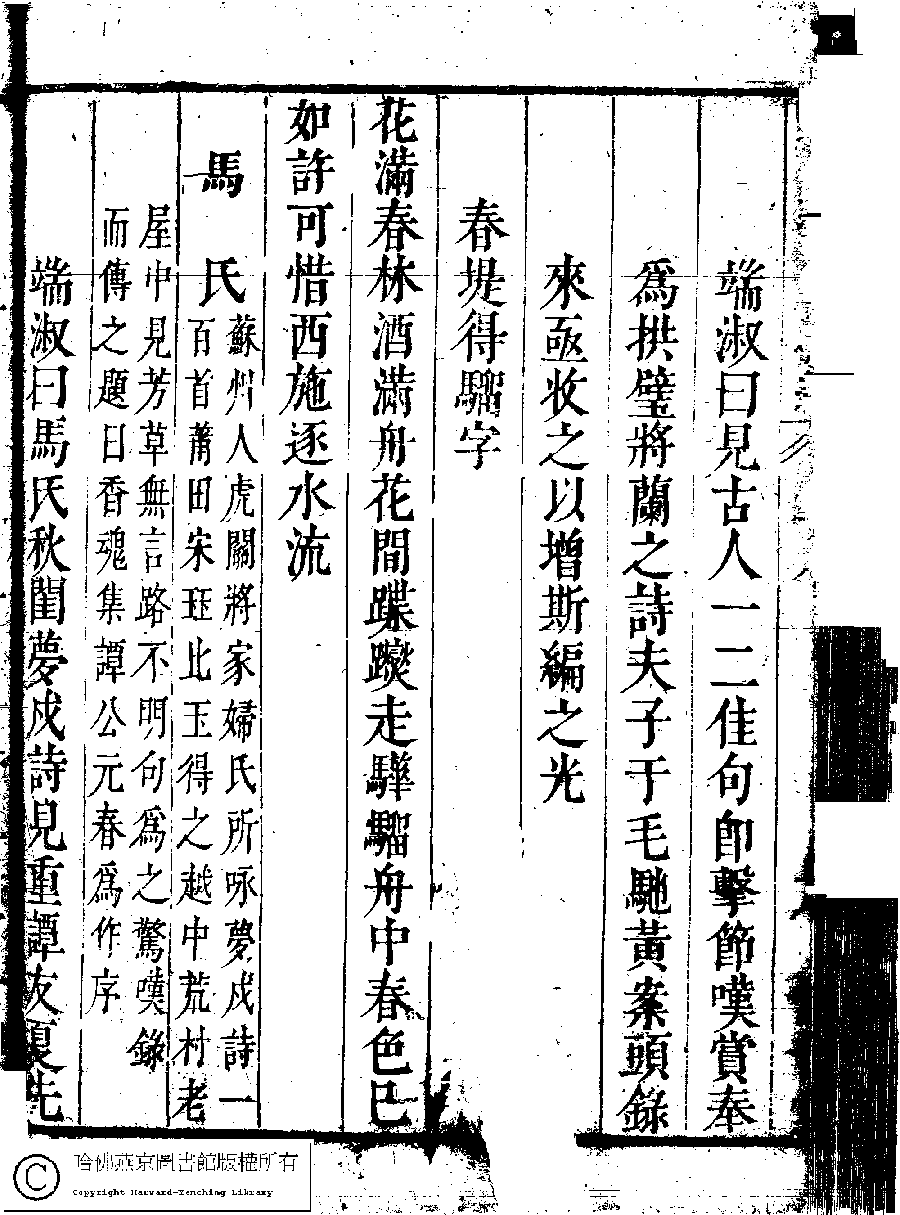 端淑曰見古人一二佳句卽擊節嘆賞奉
爲拱璧將蘭之詩夫子于毛馳黃案頭錄
來亟收之以增斯編之光
春堤得騮字
花滿春林酒滿舟花間蹀躞走驊騮舟中春色已
如許可惜西施逐水流
馬氏
蘇州人虎關將家婦氏所咏夢戍詩一
百首莆田宋珏比玉得之越中荒村老
屋中見芳草無言路不明句爲之驚嘆錄
而傳之題曰香魂集譚公元春爲作序
端淑曰馬氏秋閨夢戍詩見重譚友夏先
哈佛燕京圖書館版權所有
Copyright Harvard-Yenching Library